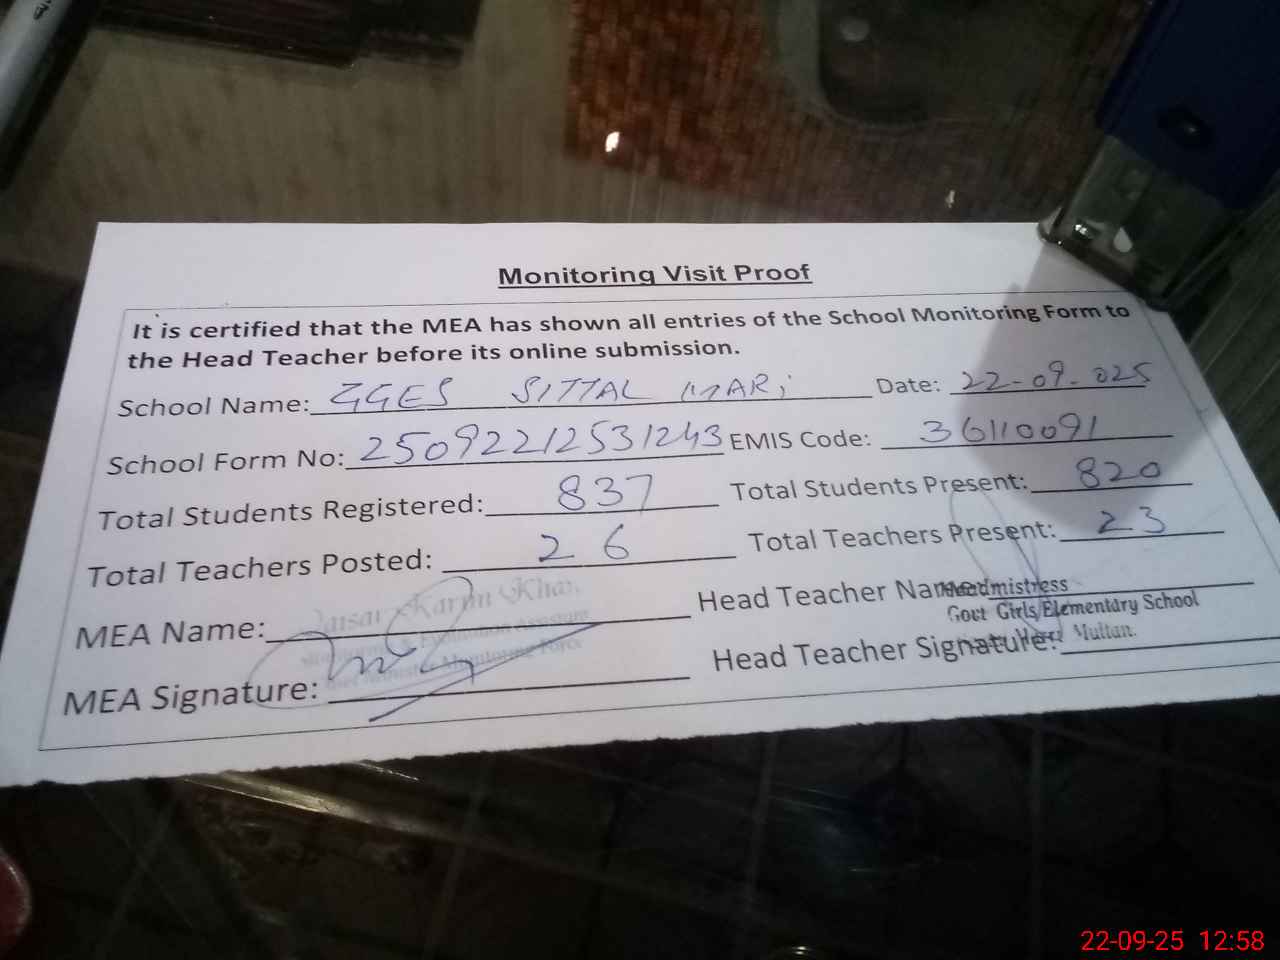 Monitoring Visit Proof
It is certified that the MEA has shown all entries of the School Monitoring Form to
the Head Teacher before its online submission.
School Name: GGES SITTAL MARi Date: 22-09-025
School Form No: 25092212531243 EMIS Code: 36110091
Total Students Registered: 837 Total Students Present: 820
Total Teachers Posted: 26 Total Teachers Present: 23
MEA Name: Karim Khan Head Teacher Name: Headmistress
Monitoring & Evaluation Assistant Govt Girls Elementary School
MEA Signature: Monitoring Force Head Teacher Signature: Multan.
22-09-25 12:58